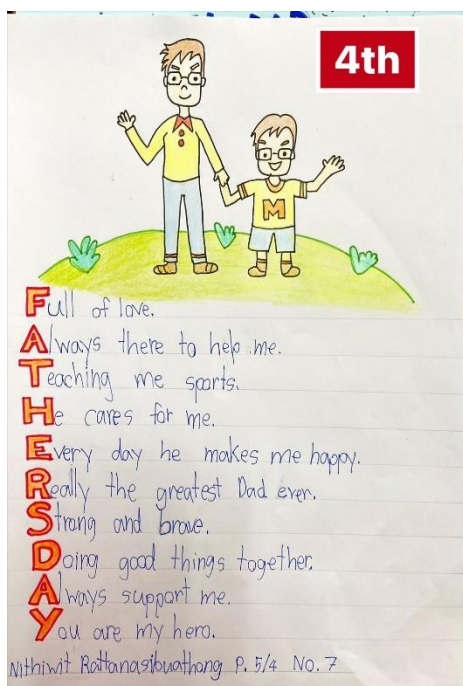 4th
M
Full of love.
Always there to help me.
Teaching me sports.
He cares for me.
Every day he makes me happy.
Really the greatest Dad ever.
Strong and brave.
Doing good things together.
Always support me.
You are my hero.
Nithiwit Rattanasibuathong P. 5/4 No. 7